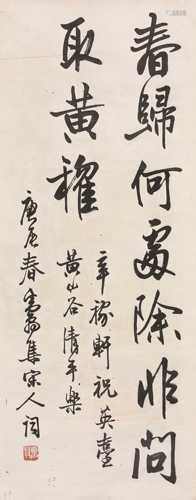 春歸何處除非問
取黃鸝
辛稼軒祝英臺
黃山谷清平樂
庚辰春翁集宋人詞